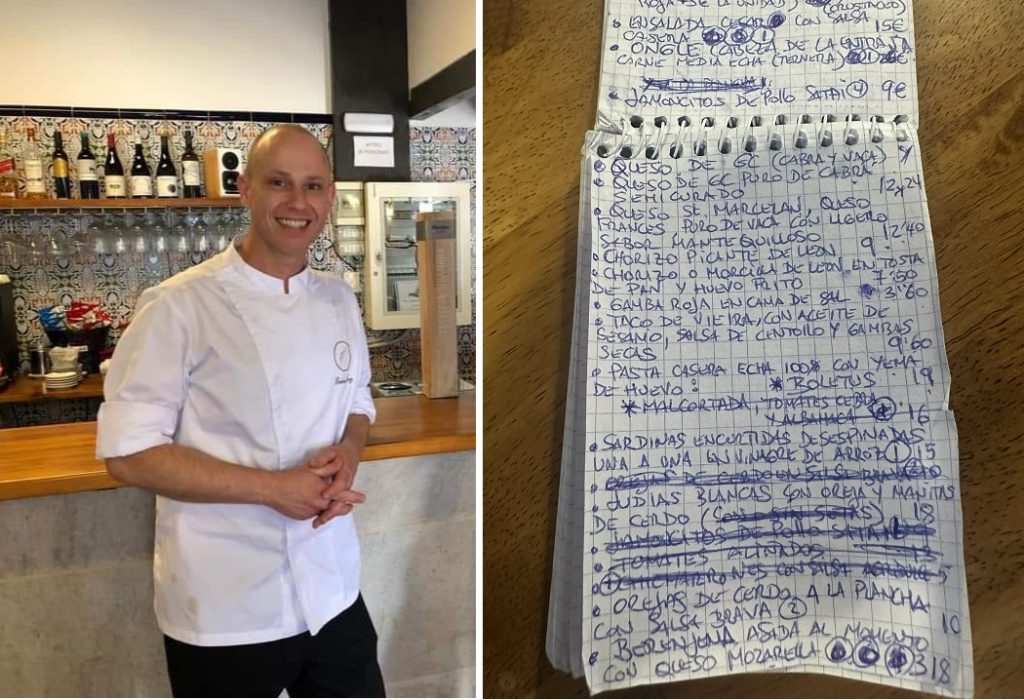 ROJA DE LA UNIDAD) (CRUSTACEO)
• ENSALADA CESAR CON SALSA
CASERA 15€
• ONGLE (CABEZA DE LA ENTRAÑA
CARNE MEDIA ECHA (TERNERA)
• JAMONCITOS DE POLLO SATAI ④ 9€
• QUESO DE GC (CABRA Y VACA) 9
• QUESO DE GC PURO DE CABRA
SEMICURADO 12 24
• QUESO SE. MARCELAN, QUESO
FRANCES PURO DE VACA CON LIGERO
SABOR MANTEQUILLOSO 12'40
• CHORIZO PICANTE DE LEON 9
• CHORIZO O MORCILLA DE LEON EN TOSTA
DE PAN Y HUEVO FRITO 7'50
• GAMBA ROJA EN CAMA DE SAL * 3'60
• TACO DE VIEIRA, CON ACEITE DE
SESANO, SALSA DE CENTOLLO Y GAMBAS
SECAS 9'60
• PASTA CASERA ECHA 100% CON YEMA
DE HUEVO: * BOLETUS 19
* MALCORTADA, TOMATES CEBLLA
Y ALBAHACA 16
• SARDINAS ENCURTIDAS DESESPINADAS
UNA A UNA EN VINAGRE DE ARROZ ① 15
• OREJAS DE CERDO EN SALSA BRAVA
• JUDIAS BLANCAS CON OREJA Y MANITAS
DE CERDO 18
• JAMONCITOS DE POLLO SATAI
• TOMATES ALIÑADOS
CON SALSA
• OREJAS DE CERDO A LA PLANCHA
CON SALSA BRAVA ② 10
• BERENJENA ASADA AL MOMENTO
CON QUESO MOZARELLA 18